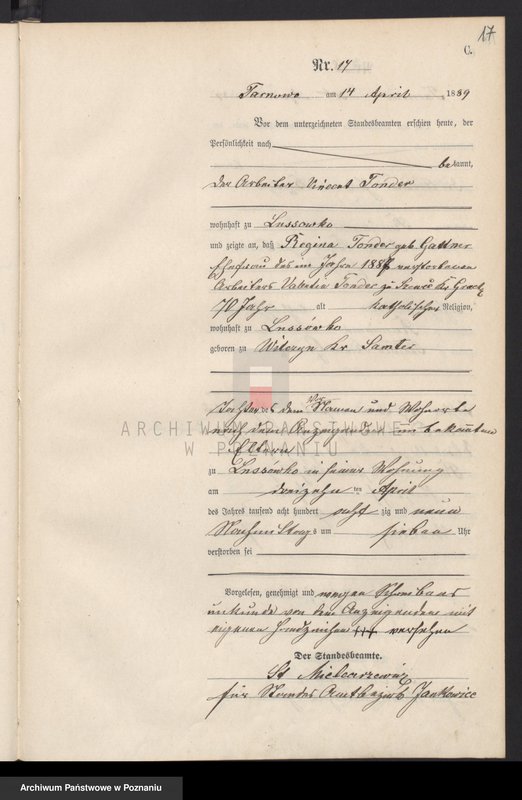 17
C.
Nr. 17
Tarnowo am 14 April 1889
Vor dem unterzeichneten Standesbeamten erschien heute, der
Persönlichkeit nach
bekannt,
der Arbeiter Vincent Tonder
wohnhaft zu Lussowko
und zeigte an, daß Regina Tonder geb Gattner
Ehefrau des im Jahre 1887 verstorbenen
Arbeiters Valentin Tonder zu Kr Graetz
70 Jahr alt katholischer Religion,
wohnhaft zu Lussowko
geboren zu Kr Samter
Tochter des dem Namen und Wohnorte
nach dem Anzeigenden unbekannten
Eltern
ARCHIWUM PAŃSTWOWE
W POZNANIU
zu Lussowko in seiner Wohnung
am dreizehn ten April
des Jahres tausend acht hundert acht zig und neun
Nachmittags um sieben Uhr
verstorben sei
Vorgelesen, genehmigt und wegen Schreibens
unkunde von dem Anzeigenden mit
eigenen Handzeichen +++ versehen
Der Standesbeamte.
St
für Standes Amtsbezirk Jankowice
Archiwum Państwowe w Poznaniu